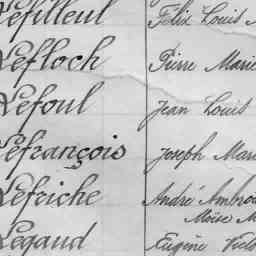 Lefilleul Félix Louis M
Lefloch Pierre Marie
Lefoul Jean Louis
Lefrançois Joseph Mari
Lefriche André Ambroi
Moïse M
Legaud Eugène Victo